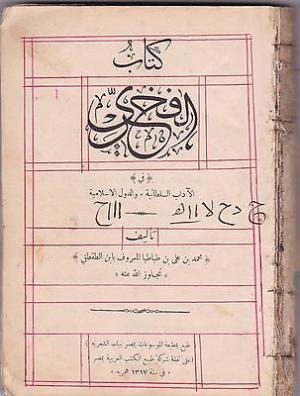 كتاب
الفخري
﴿ في ﴾
الآداب السلطانية - والدول الاسلامية
تأليف
﴿ محمد بن علي بن طباطبا المعروف بابن الطقطقي ﴾
﴿ تجاوز الله عنه ﴾
( طبع بمطبعة الموسوعات بمصر بباب الشعريه )
( على نفقة شركة طبع الكتب العربية بمصر )
( في سنة ١٣١٧ هجريه )